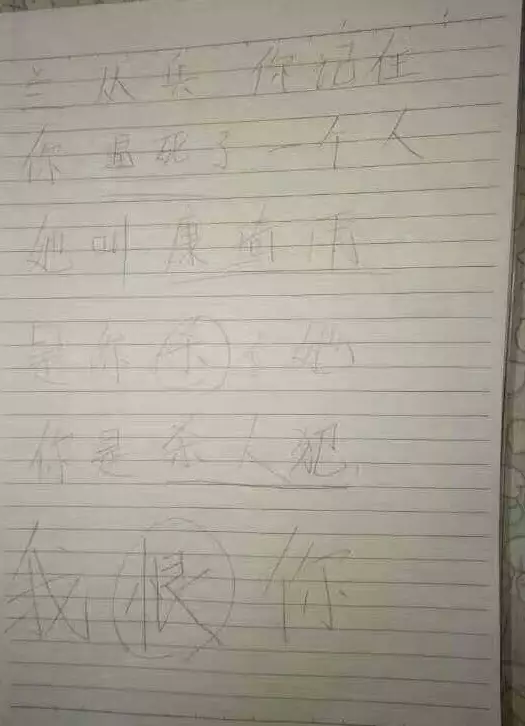 兰从兵 你记住
你逼死了一个人
她叫康埼雨
是你杀了她
你是杀人犯
我恨你